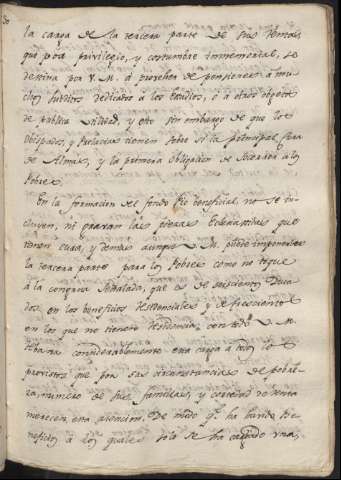 la carga de la tercera parte de sus Rentas,
que por privilegio, y costumbre immemorial, se
destina por V. M. á proveher de pensiones á mu-
chos subditos dedicados á los Estudios, ó á otros objetos
de publica utilidad, y esto sin embargo de que los
Obispados, y Prelacias tienen sobre sí la principal Cura
de Almas, y la primera obligacion de socorrer á los
Pobres.
En la formacion del fondo Pio beneficial no se in-
cluyen, ni gravan las piezas Eclesiasticas que
tienen cura, y demas aunque V. M. puede imponerles
la tercera parte para los Pobres como no toque
á la congrua señalada, que es de seiscientos Duca-
dos en los beneficios residenciales y de trescientos
en los que no tienen residencia, con todo V. M.
la carga á todos los
provistos que por sus circunstancias de pobre-
za, numero de sus familias, y cortedad de renta
merecen esta atencion, De modo que ha havido Be-
neficios á los quales solo se ha cargado una,